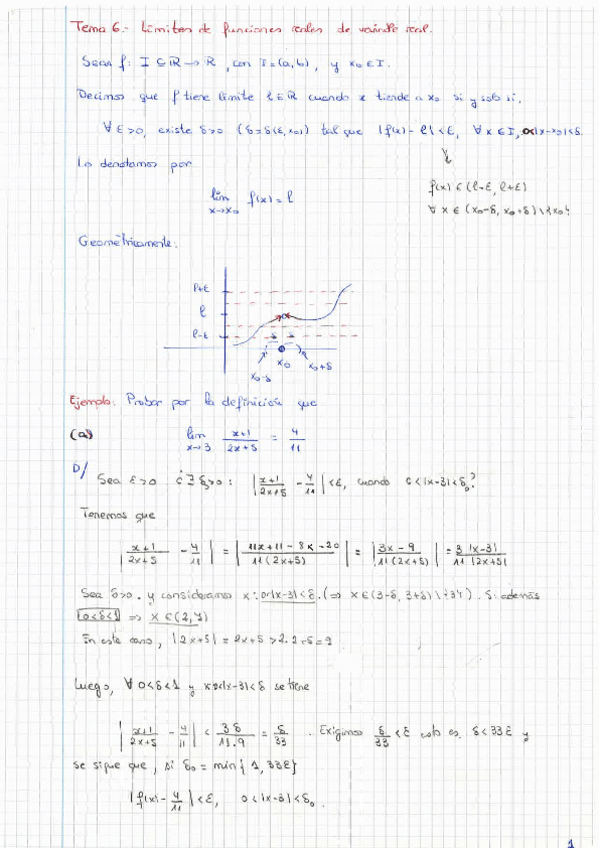 Tema 6.- Límites de funciones reales de variable real.
Sean f: I ⊆ ℝ → ℝ, con I=(a,b), y x₀ ∈ I.
Decimos que f tiene límite l ∈ ℝ cuando x tiende a x₀ si y solo si,
∀ ε>0, existe δ>0 (δ=δ(ε,x₀)) tal que |f(x) - l| < ε, ∀ x ∈ I, 0<|x-x₀|<δ.
Lo denotamos por
f(x) ∈ (l-ε, l+ε)
∀ x ∈ (x₀-δ, x₀+δ)\{x₀}
lim x→x₀ f(x) = l
Geométricamente:
l+ε
l
l-ε
δ δ
x₀
x₀-δ
x₀+δ
Ejemplo: Probar por la definición que
(a) lim x→3 (x+1)/(2x+5) = 4/11
D/ Sea ε>0 ¿∃ δ₀>0 : |(x+1)/(2x+5) - 4/11| < ε, cuando 0<|x-3|<δ₀?
Tenemos que
|(x+1)/(2x+5) - 4/11| = |(11x+11-8x-20)/(11(2x+5))| = |(3x-9)/(11(2x+5))| = 3|x-3|/(11|2x+5|)
Sea δ>0. y consideramos x: 0<|x-3|<δ. (⇒ x ∈ (3-δ, 3+δ)\{3}). Si además
0<δ<1 ⇒ x ∈ (2,
En este caso, |2x+5| = 2x+5 > 2·2+5 = 9
Luego, ∀ 0<δ<1 y x: 0<|x-3|<δ se tiene
|(x+1)/(2x+5) - 4/11| < 3δ/(11·9) = δ/33. Exigimos δ/33 < ε esto es, δ<33ε y
se sigue que, si δ₀ = min{1, 33ε}
|f(x) - 4/11| < ε, 0<|x-3|<δ₀.
1